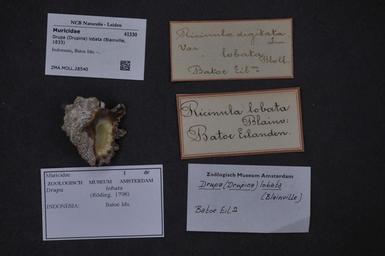 NCB Naturalis - Leiden
Muricidae 41330
Drupa (Drupina) lobata (Blainville,
1833)
Indonesia, Batoe Ids. -.
ZMA.MOLL.38540
Ricinula digitata
Var. lobata
Batoe Eiln
Ricinula lobata
Blainv.
Batoe Eilanden.
Muricidae 1 dr
ZOOLOGISCH MUSEUM AMSTERDAM
Drupa lobata
(Röding, 1798)
INDONESIA: Batoe Ids.
Zoölogisch Museum Amsterdam
Drupa (Drupina) lobata
(Blainville)
Batoe Eil.n